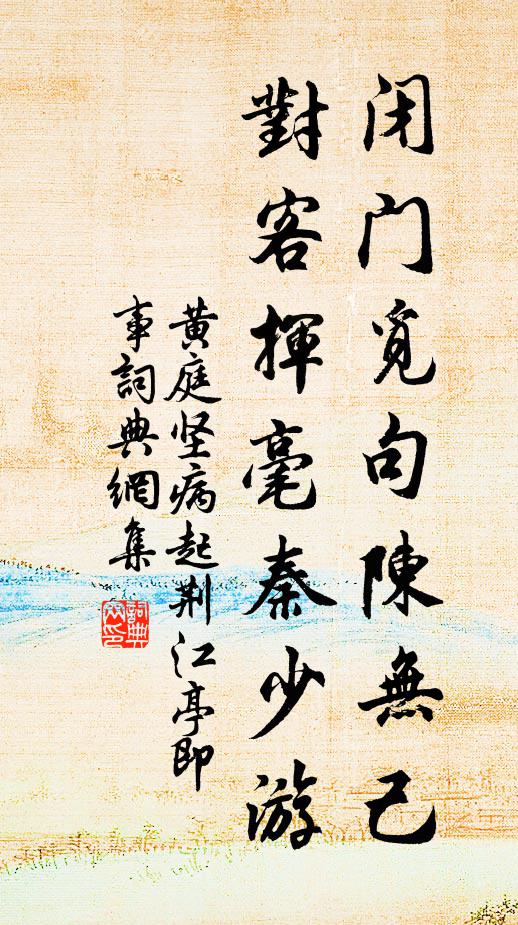 闭门觅句陳無己
對客揮毫秦少游
黄庭坚病起荆江亭即
事詞典網集
詞典
网印